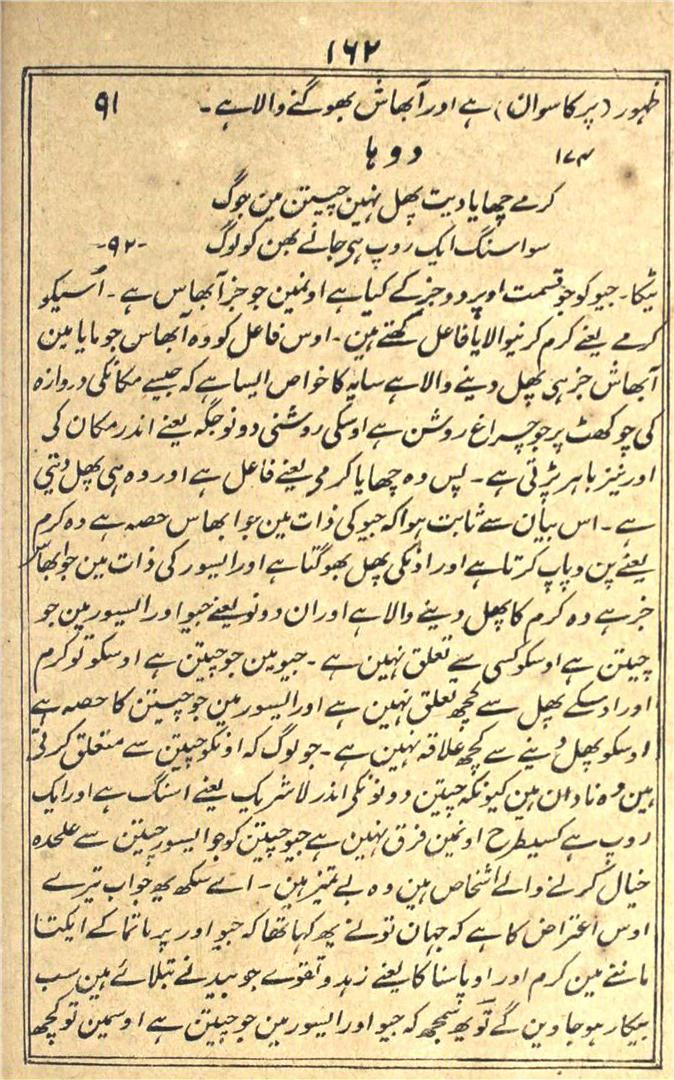 ۱۶۲
ظہور (پرکاسوان) ہے اور آبھاش بھوگنے والا ہے۔ ۹۱
۱۷۴ دوہا
کرمے چھایا دیت پھل نہین چیتن مین جوگ
سو اسنگ ایک روپ ہی جانے بھن کو لوگ -۹۲-
ٹیکا۔ جیو کو جو قسمت اوپر دو جز کے کیا ہے اونمین جو جز آبھاس ہے۔ اُسیکو
کرمے یعنے کرم کرنیوالا یا فاعل کہتے ہین۔ اوس فاعل کو وہ آبھاس جو مایا مین
آبھاش جز ہی پھل دینے والا ہے سایہ کا خواص ایسا ہے کہ جیسے مکانکی دروازہ
کی چوکھٹ پر جو چراغ روشن ہے اوسکی روشنی دونو جگہ یعنے اندر مکان کی
اور نیز باہر پڑتی ہے۔ پس وہ چھایا کرمی یعنے فاعل ہے اور وہ ہی پھل دیتی
ہے۔ اس بیان سے ثابت ہوا کہ جیو کی ذات مین جو ابھاس حصہ ہے وہ کرم
یعنے پن و پاپ کرتا ہے اور اونکی پھل بھوگتا ہے اور ایسور کی ذات مین جو ابھاس
جز ہے وہ کرم کا پھل دینے والا ہے اور ان دونو یعنے جیو اور ایسور مین جو
چیتن ہے اوسکو کسی سے تعلق نہین ہے۔ جیو مین جو چیتن ہے اوسکو تو کرم
اور اوسکے پھل سے کچھ تعلق نہین ہے اور ایسور مین جو چیتن کا حصہ ہے
اوسکو پھل دینے سے کچھ علاقہ نہین ہے۔ جو لوگ کہ اونکو چیتن سے متعلق کرتی
ہین وہ نادان ہین کیونکہ چیتن دونونکی اندر لاشریک یعنے اسنگ ہے اور ایک
روپ ہے کسیطرح اونمین فرق نہین ہے جیو چیتن کو جو ایسور چیتن سے علحدہ
خیال کرنے والے اشخاص ہین وہ بے تمیز ہین۔ اے سکھ یھ جواب تیرے
اوس اعتراض کا ہے کہ جہان تونے یھ کہا تھا کہ جیو اور پرماتما کے ایکتا
ماننے مین کرم اور اوپاسنا کا یعنے زہد و تقوے جو بید نے بتلائے ہین سب
بیکار ہو جاوین گے تو یھ سمجھ کہ جیو اور ایسور مین جو چیتن ہے اوسمین تو کچھ